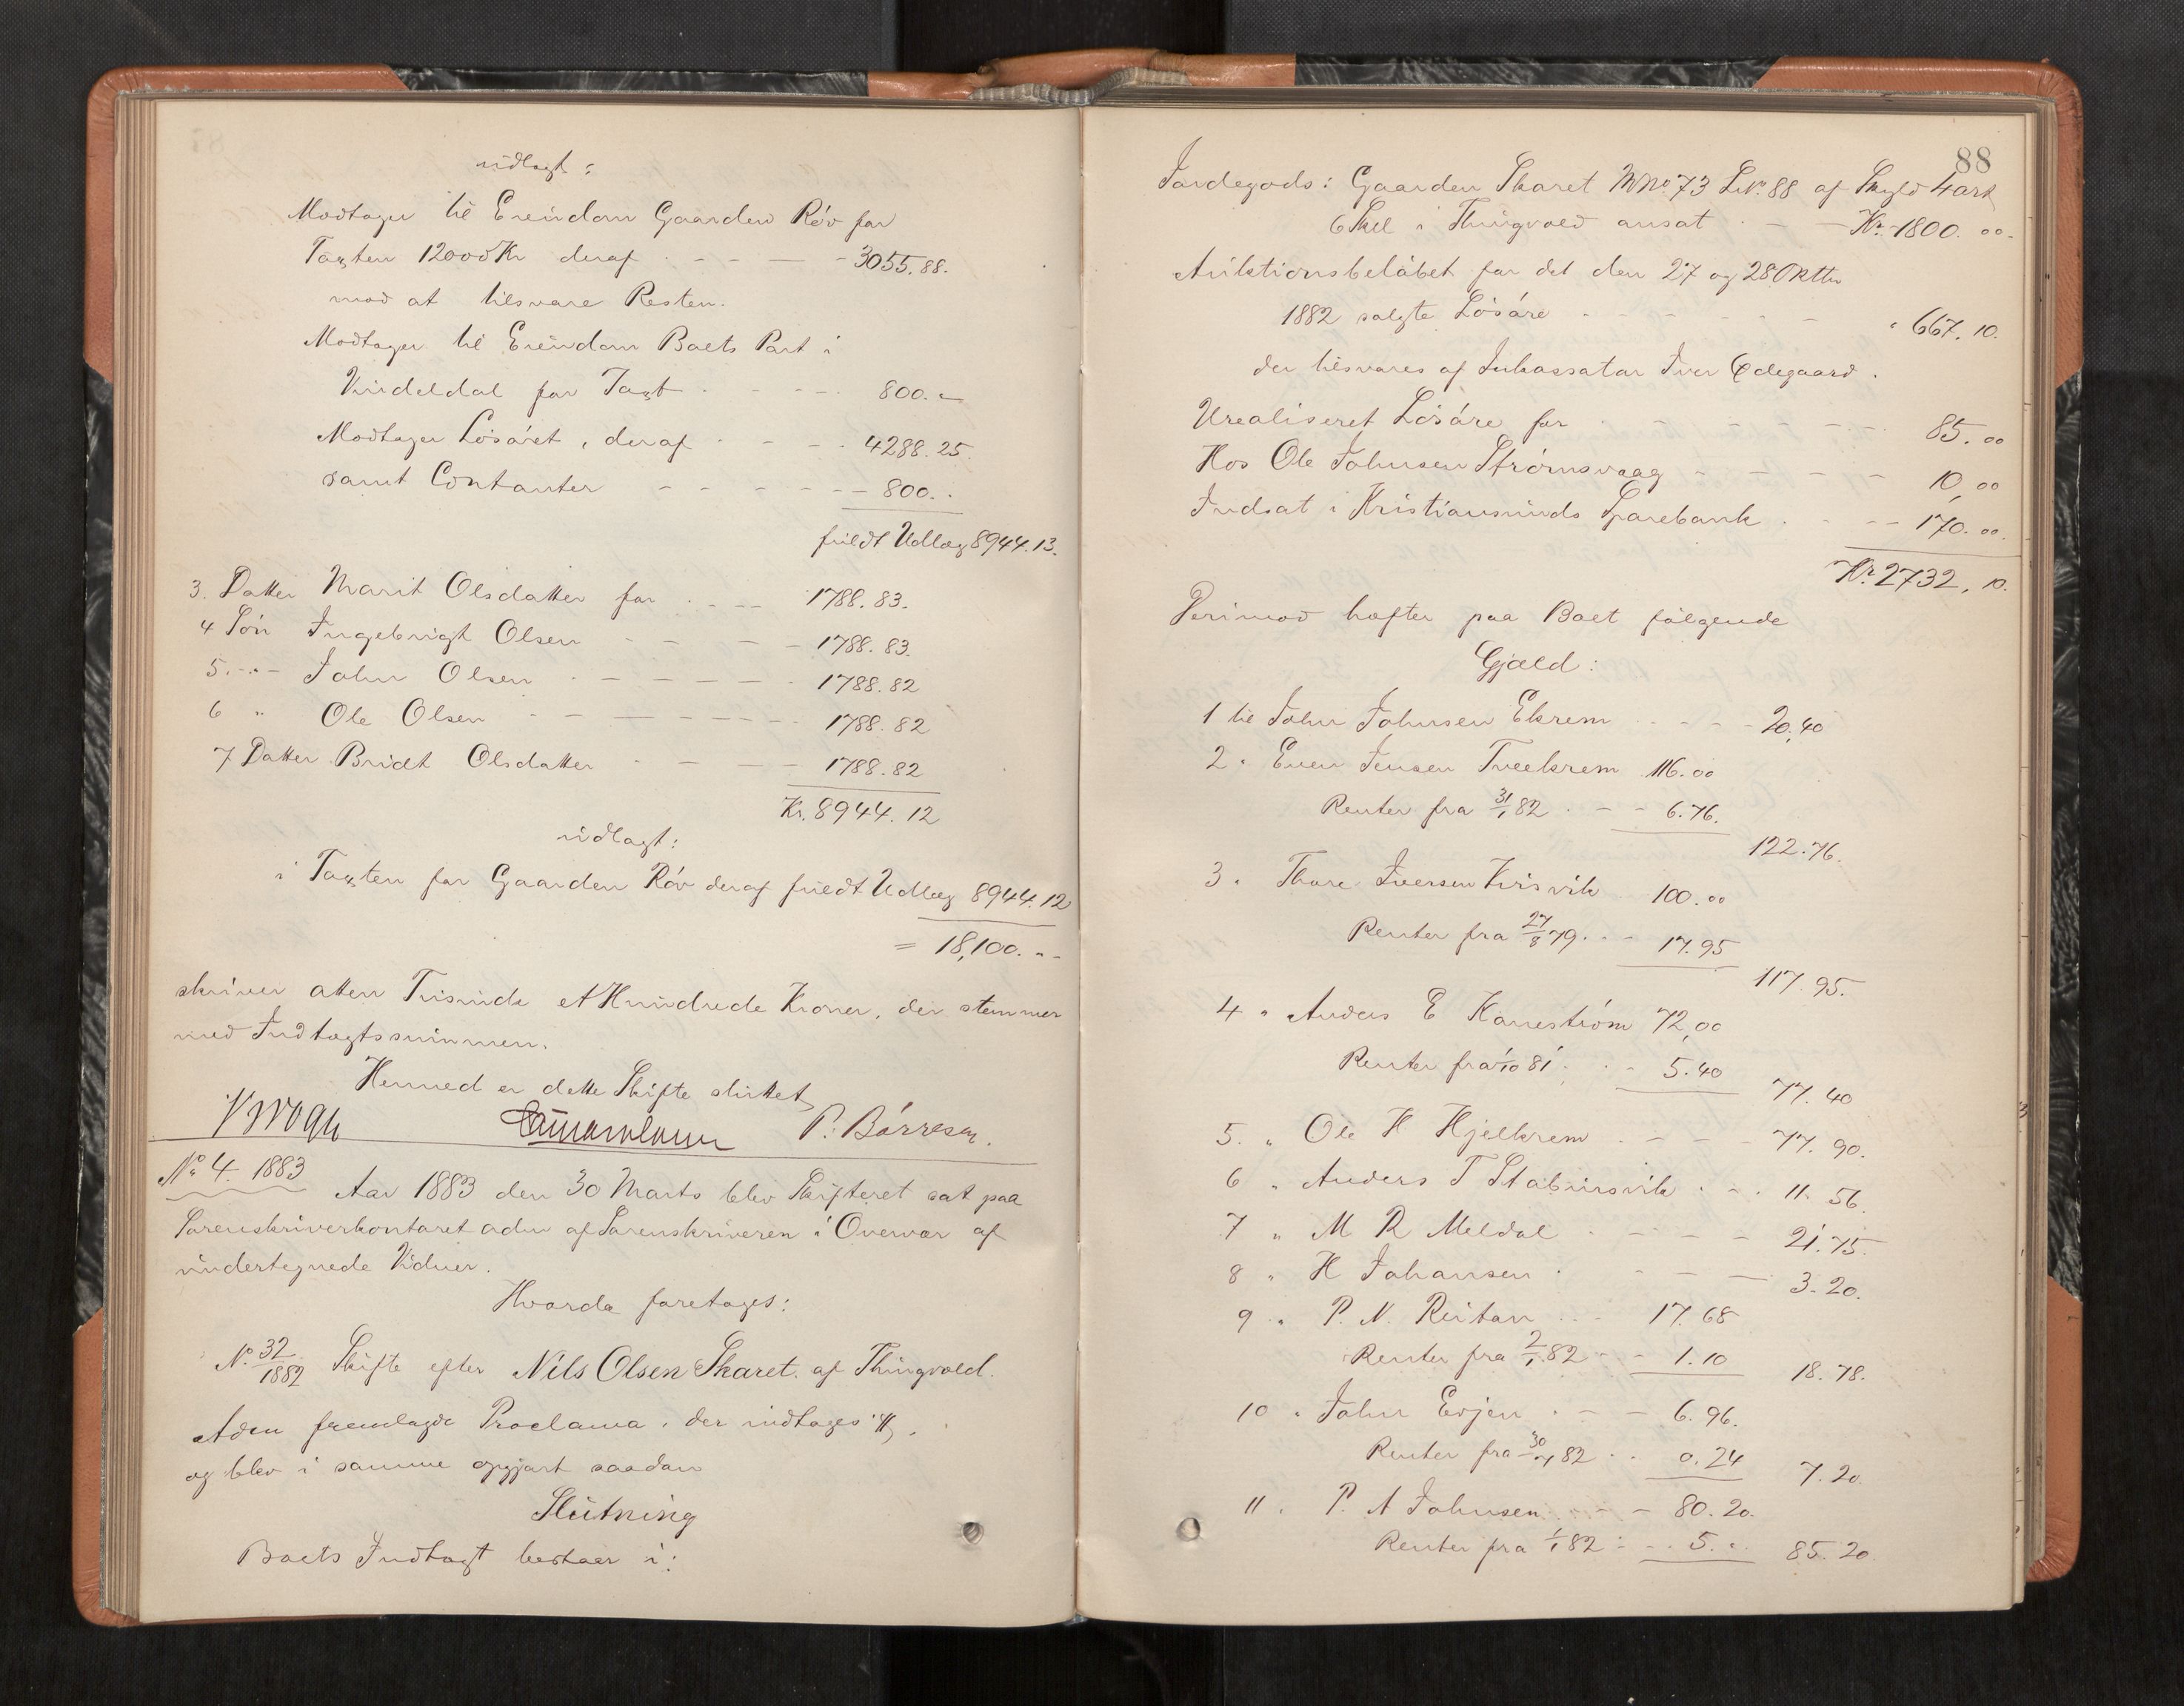 udlagt:
Modtager til Eiendom Gaarden Röv for
Taxten 12000 Kr deraf - - - 3055.88.
mod at tilsvare Resten.
Modtager til Eiendom Boets Part i
Vindeldal for Taxt - - - 800. "
Modtager Lösöret, deraf - - - 4288.25.
samt Contanter - - - 800. "
fuldt Udlæg 8944.13.
3. Datter Marit Olsdatter for - - - 1788.83.
4 Sön Ingebrigt Olsen - - - 1788.83.
5. - " - John Olsen - - - 1788.82
6 " Ole Olsen - - - 1788.82
7 Datter Bridt Olsdatter - - - 1788.82
Kr. 8944.12
udlagt:
i Taxten for Gaarden Röv deraf fuldt Udlæg 8944.12
= 18,100. " "
skriver atten Tusinde et Hundrede Kroner, der stemmer
med Indtægtssummen.
Hermed er dette Skifte sluttet
Krogh P. Börresen.
No 4. 1883
Aar 1883 den 30 Marts blev Skifteret sat paa
Sorenskriverkontoret adm af Sorenskriveren i Overvær af
undertegnede Vidner.
Hvorda foretages:
No. 32/1882 Skifte efter Nils Olsen Skaret af Thingvold.
Adm fremlagde Proclama, der indtages
og blev i samme opgjort saadan
Slutning
Boets Indtægt bestaar i:
88
Jordegods: Gaarden Skaret MNo. 73 LNo. 88 af Skyld 4 ort
6 Skil i Thingvold ansat - - Kr. 1800.00.
Auktionsbelöbet for det den 27 og 28 Oktbr
1882 solgte Lösöre - - - " 667.10.
der tilsvares af Inkassator Iver Ødegaard.
Urealiseret Lösöre for - - - 85.00
Hos Ole Johnsen Strömsvaag - - - 10,00
Indsat i Kristiansunds Sparebank - - - 170.00.
Kr. 2732,10.
Derimod hæfter paa Boet fölgende
Gjæld:
1 til John Johnsen Ekrem - - - 20,40
2 " Even Jensen Tveekrem 116.00
Renter fra 31/1 82 - - 6.76.
122.76.
3 " Thore Iversen Kvisvik 100.00
Renter fra 27/8 79 - - 17.95
117.95.
4 " Anders E Kaneström 72,00
Renter fra 1/10 81 - - 5.40
77.40
5. " Ole H Hjelkrem - - - 77.90.
6 " Anders T Stabursvik - - 11.56.
7 " M R Meldal - - - 21.75.
8 " H Johansen - - - 3.20.
9 " P. N. Reitan - - 17.68
Renter fra 2/1 82 - - 1.10 18.78.
10 " John Evjen - - 6.96.
Renter fra 30/7 82 - - 0.24 7.20.
11 " P. A Johnsen - - 80.20.
Renter fra 1/1 82 - - 5. " 85.20